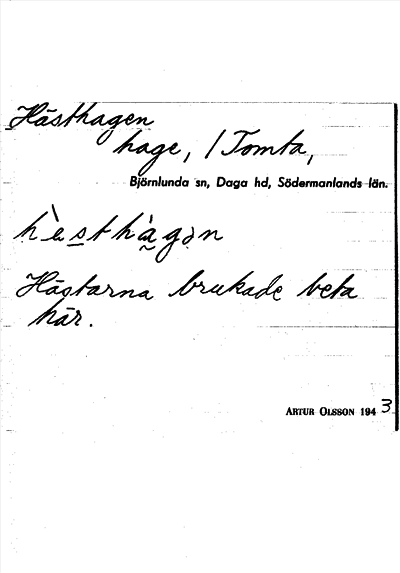 Hästhagen
hage, / Tomta,
Björnlunda sn, Daga hd, Södermanlands län.
hὲsthàgən
Hästarna brukade beta
här.
ARTUR OLSSON 1943